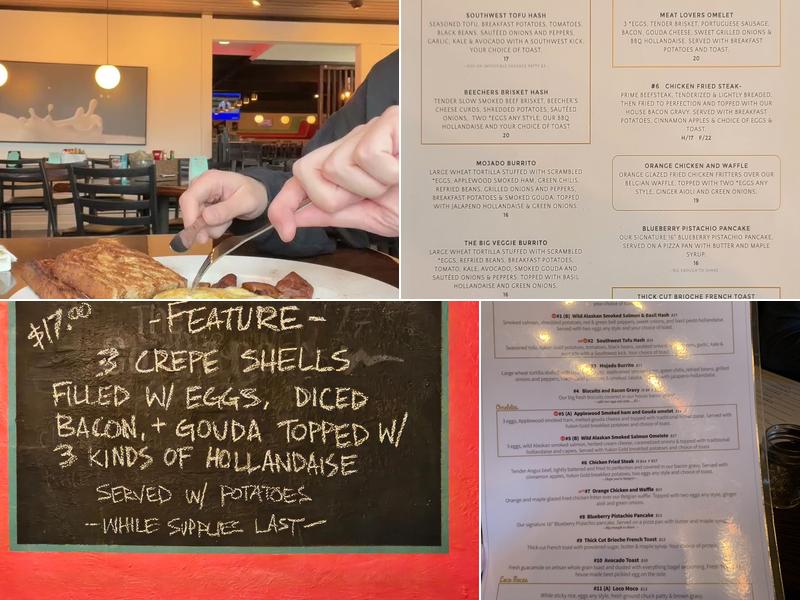 SOUTHWEST TOFU HASH
SEASONED TOFU, BREAKFAST POTATOES, TOMATOES,
BLACK BEANS, SAUTÉED ONIONS AND PEPPERS,
GARLIC, KALE & AVOCADO WITH A SOUTHWEST KICK.
YOUR CHOICE OF TOAST.
17
BEECHERS BRISKET HASH
TENDER SLOW SMOKED BEEF BRISKET, BEECHER'S
CHEESE CURDS, SHREDDED POTATOES, SAUTÉED
ONIONS, TWO *EGGS ANY STYLE, OUR BBQ
HOLLANDAISE AND YOUR CHOICE OF TOAST
20
MOJADO BURRITO
LARGE WHEAT TORTILLA STUFFED WITH SCRAMBLED
*EGGS, APPLEWOOD SMOKED HAM, GREEN CHILIS,
REFRIED BEANS, GRILLED ONIONS AND PEPPERS,
BREAKFAST POTATOES & SMOKED GOUDA. TOPPED
WITH JALAPENO HOLLANDAISE & GREEN ONIONS.
16
THE BIG VEGGIE BURRITO
LARGE WHEAT TORTILLA STUFFED WITH SCRAMBLED
*EGGS, REFRIED BEANS, BREAKFAST POTATOES,
TOMATO, KALE, AVOCADO, SMOKED GOUDA AND
SAUTÉED ONIONS & PEPPERS. TOPPED WITH BASIL
HOLLANDAISE AND GREEN ONIONS.
16
MEAT LOVERS OMELET
3 *EGGS, TENDER BRISKET, PORTUGUESE SAUSAGE,
BACON, GOUDA CHEESE, SWEET GRILLED ONIONS &
BBQ HOLLANDAISE. SERVED WITH BREAKFAST
POTATOES AND TOAST.
20
#6 CHICKEN FRIED STEAK-
PRIME BEEFSTEAK, TENDERIZED & LIGHTLY BREADED,
THEN FRIED TO PERFECTION AND TOPPED WITH OUR
HOUSE BACON GRAVY. SERVED WITH BREAKFAST
POTATOES, CINNAMON APPLES & CHOICE OF EGGS &
TOAST.
H/17 F/22
ORANGE CHICKEN AND WAFFLE
ORANGE GLAZED FRIED CHICKEN FRITTERS OVER OUR
BELGIAN WAFFLE. TOPPED WITH TWO *EGGS ANY
STYLE, GINGER AIOLI AND GREEN ONIONS.
19
BLUEBERRY PISTACHIO PANCAKE
OUR SIGNATURE 16" BLUEBERRY PISTACHIO PANCAKE,
SERVED ON A PIZZA PAN WITH BUTTER AND MAPLE
SYRUP.
16
BIG ENOUGH TO SHARE
THICK CUT BRIOCHE FRENCH TOAST
$17.00
-FEATURE-
3 CREPE SHELLS
FILLED W/ EGGS, DICED
BACON, + GOUDA TOPPED W/
3 KINDS OF HOLLANDAISE
SERVED W/ POTATOES
-WHILE SUPPLIES LAST-
#1 (B) Wild Alaskan Smoked Salmon & Basil Hash
#2 Southwest Tofu Hash
Mojado Burrito
#4 Biscuits and Bacon Gravy
Our big fresh biscuits covered in our house bacon gravy
Omelets
#5 (A) Applewood Smoked ham and Gouda omelet
#5 (B) Wild Alaskan Smoked Salmon Omelete
#6 Chicken Fried Steak
#7 Orange Chicken and Waffle
#8 Blueberry Pistachio Pancake
Our signature 16" Blueberry Pistachio pancake. Served on a pizza pan with butter and maple syrup.
#9 Thick Cut Brioche French Toast
Thick-cut French toast with powdered sugar, butter & maple syrup.
#10 Avocado Toast
Loco Mocos
#11 (A) Loco Moco